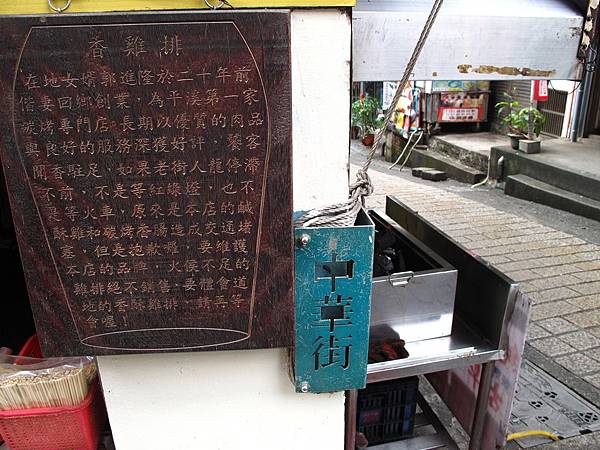 香雞排
在地女婿郭進隆於二十年前
偕妻回鄉創業，為平溪第一家
碳烤專門店，長期以優質的肉品
與良好的服務深獲好評，饕客
聞香駐足，如果老街人龍停滯
不前，不是等紅綠燈，也不
是等火車，原來是本店的鹹
酥雞和碳烤香腸造成交通堵
塞，但是抱歉喔，要維護
本店的品牌，火侯不足的
雞排絕不銷售，要體會道
地的香酥雞排，請再等
會喔！
中華街